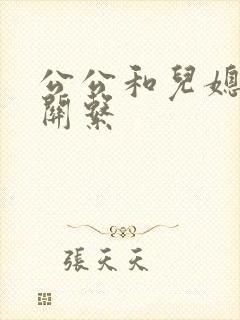 公公和兒媳
關繫
張天天